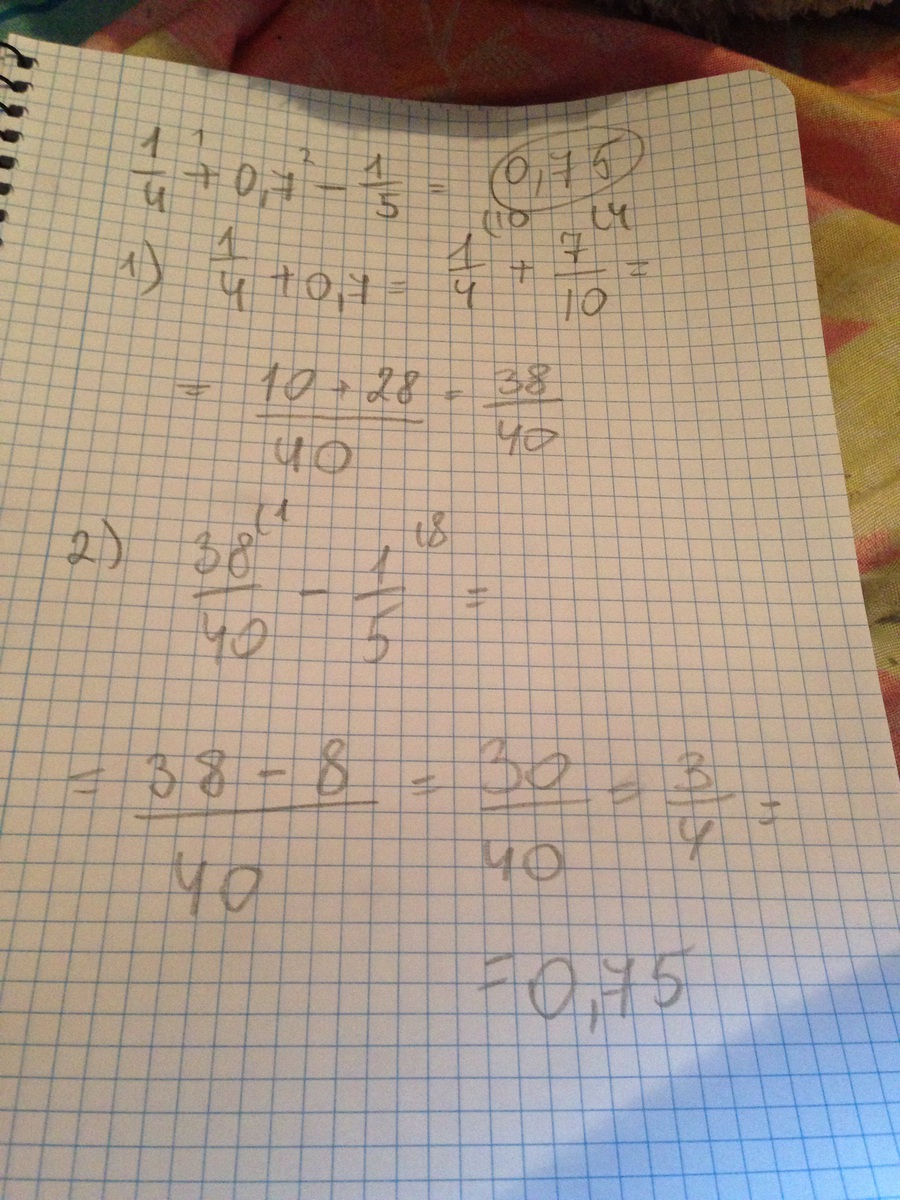 1/4 +¹ 0,7 -² 1/5 = 0,75
1) 1/4 + 0,7 = 1/4 (10 + 7/10 (4 =
= (10 + 28)/40 = 38/40
2) 38/40 (1 - 1/5 (8 =
= (38 - 8)/40 = 30/40 = 3/4 =
= 0,75